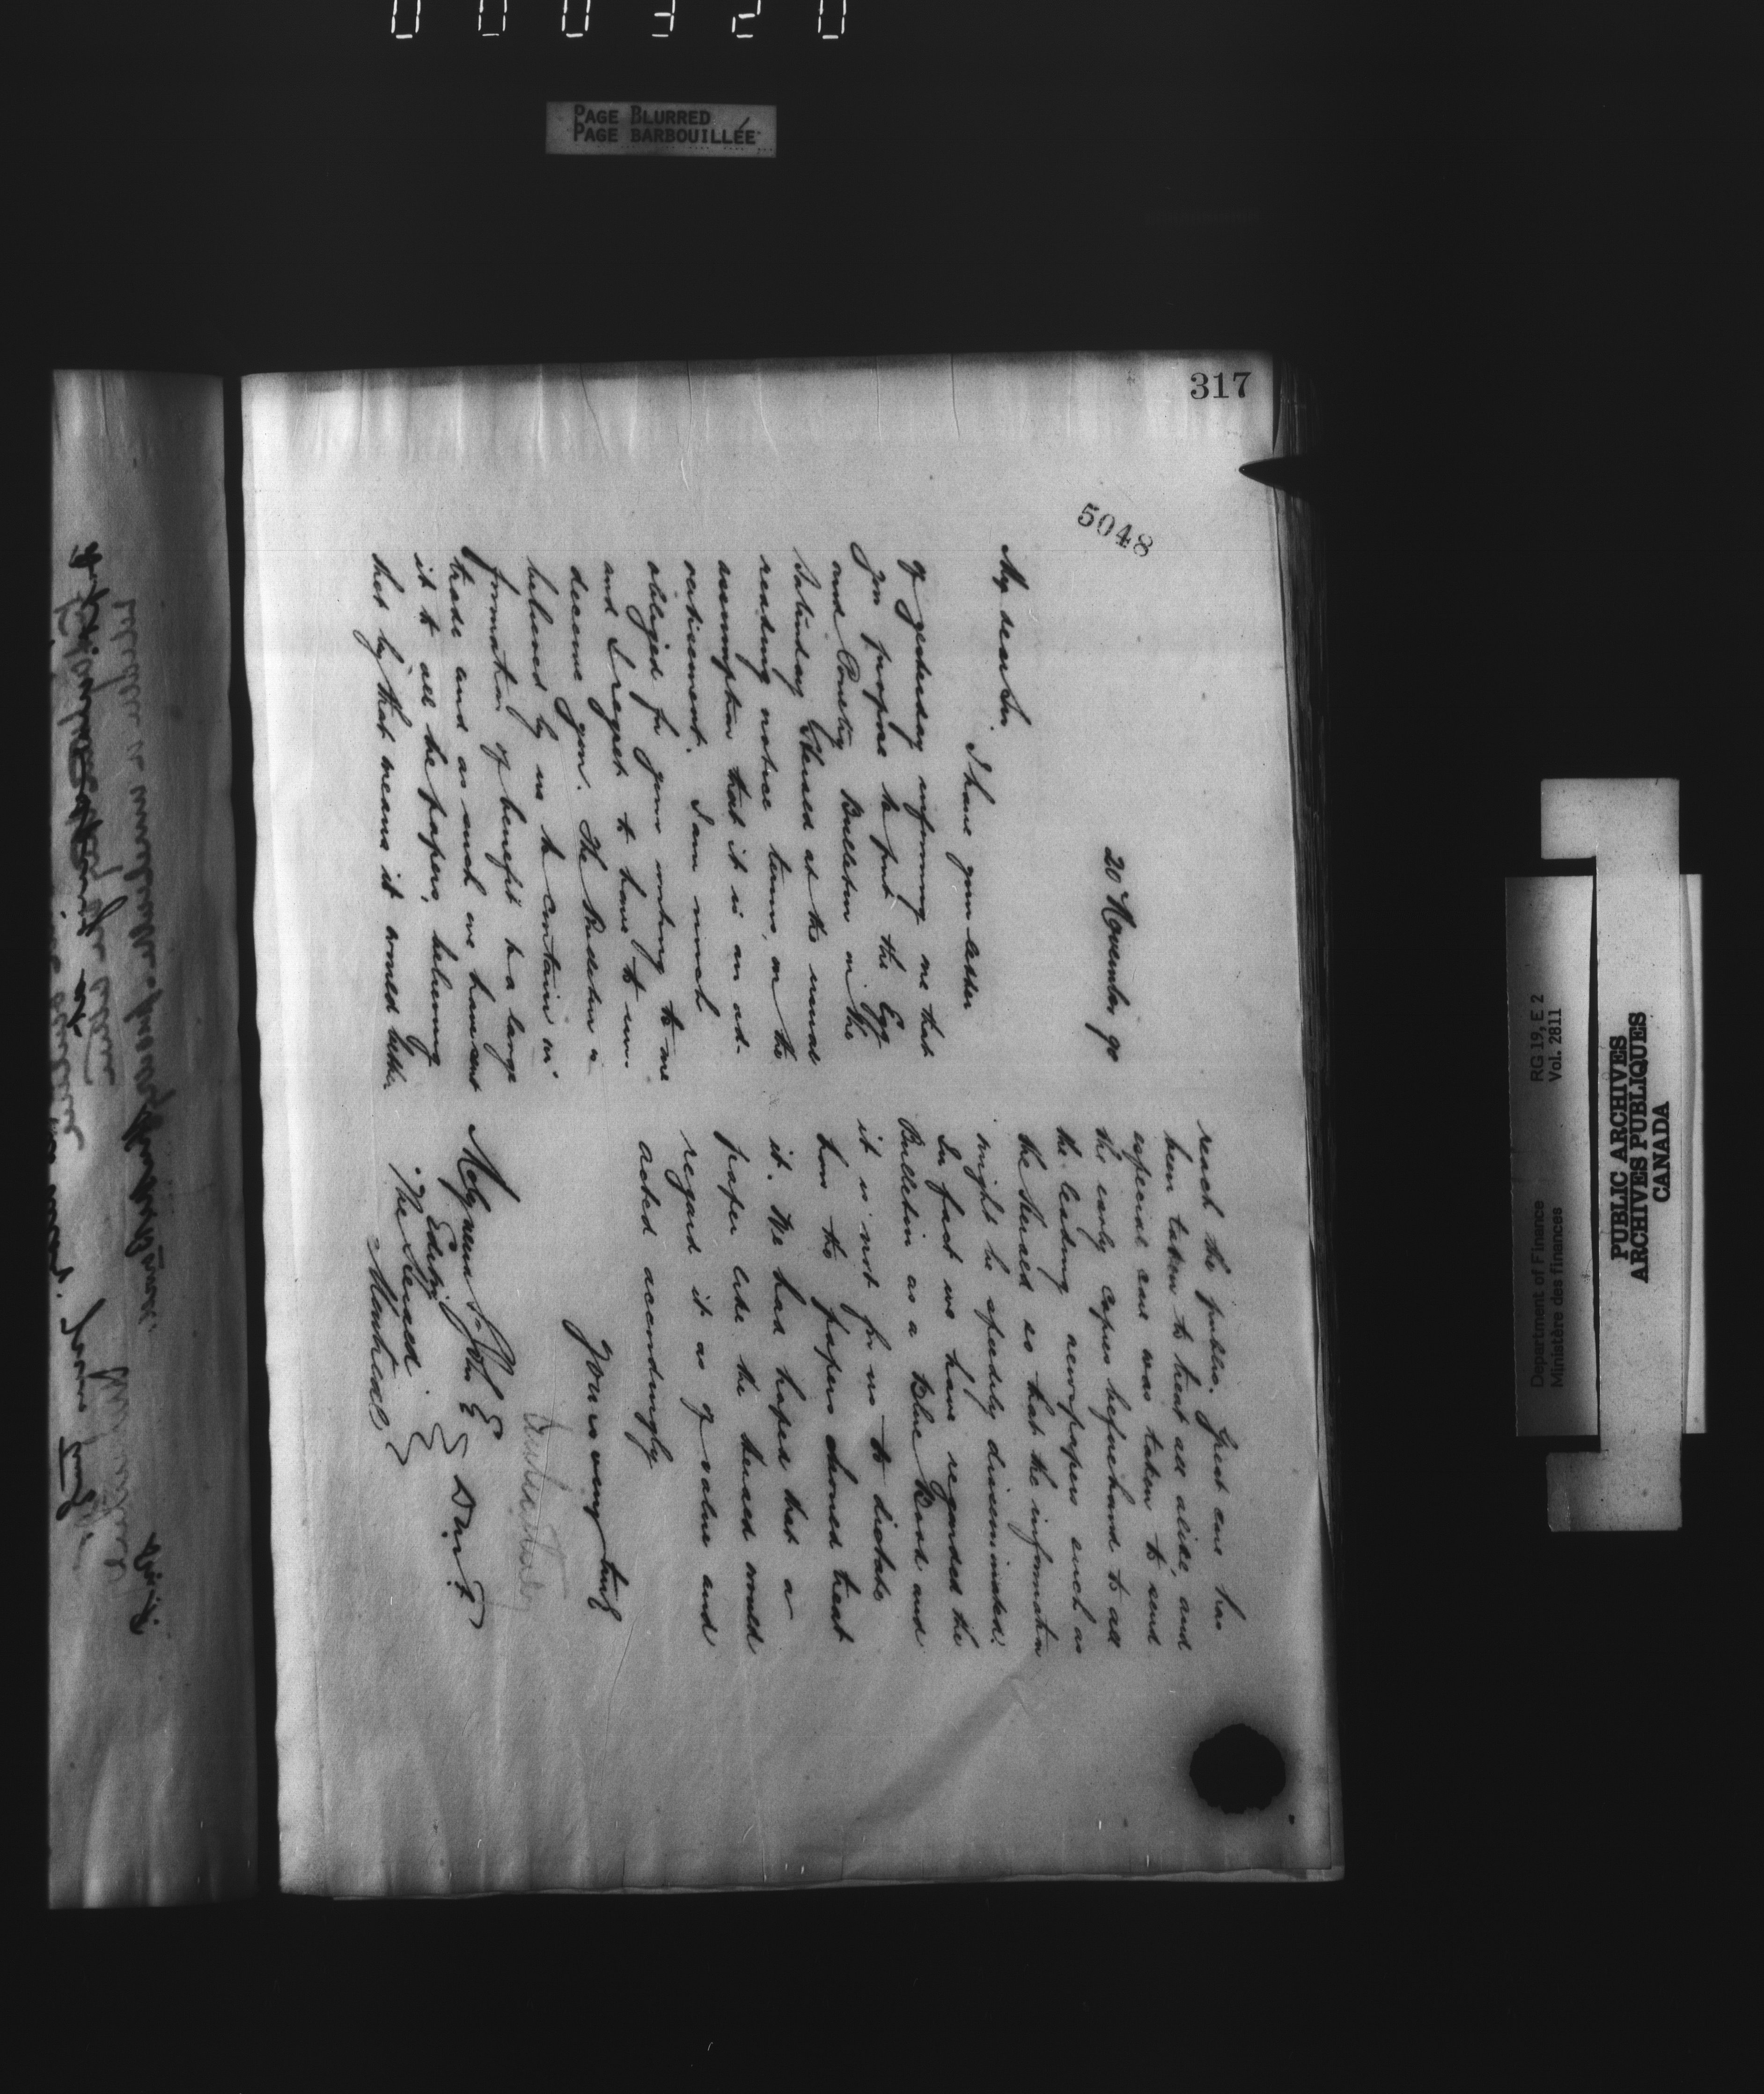 000320
PAGE BLURRED
PAGE BARBOUILLÉE
317
5048
20 November 90
My dear Sir,
I have your letter
of yesterday informing me that
you propose to put the Egg
and Poultry Bulletin in the
Saturday Herald at the usual
reading notice terms, on the
assumption that it is an ad-
vertisement. I am much
obliged for your writing to me
and I regret to have to un-
deceive you. The Bulletin is
believed by us to contain in-
formation of benefit to a large
trade and as such we have sent
it to all the papers, believing
that by that means it would better
reach the public. Great care has
been taken to treat all alike, and
especial care was taken to send
the early copies beforehand to all
the leading newspapers such as
the Herald so that the information
might be speedily disseminated.
In fact we have regarded the
Bulletin as a Blue Book and
it is not for us to dictate
how the papers should treat
it. We had hoped that a
paper like the Herald would
regard it as of value and
acted accordingly
Yours very truly
Molyneux St. John Esq
Editor
The Herald
Montreal
Department of Finance
Ministère des finances
RG 19, E 2
Vol. 2811
PUBLIC ARCHIVES
ARCHIVES PUBLIQUES
CANADA